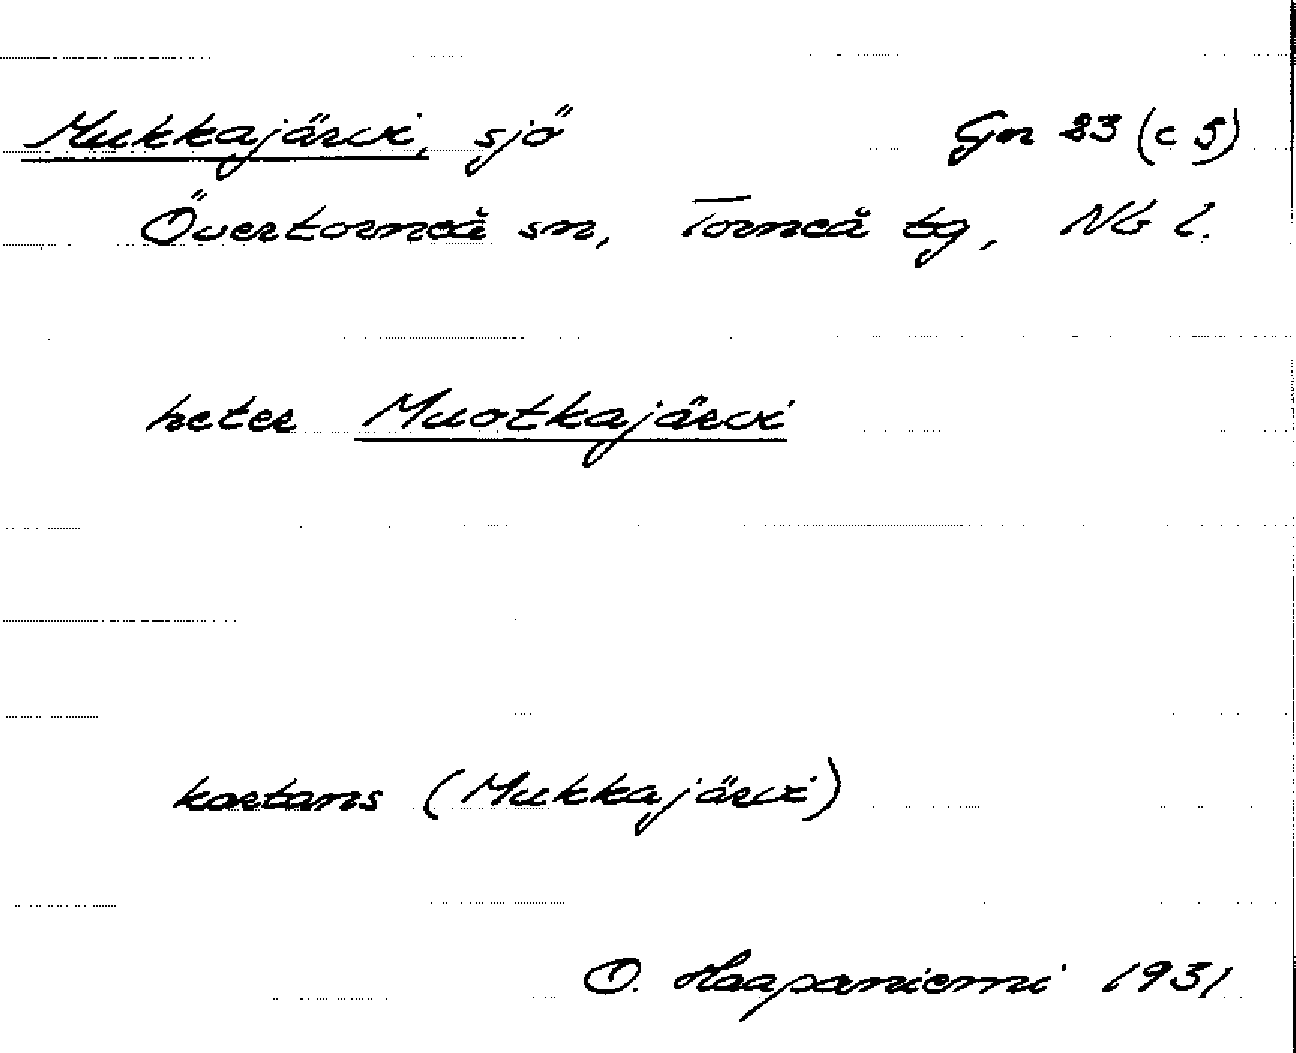 Mukkajärvi, sjö Gn 23 (c 5)
Övertorneå sn, Torneå tg, Nb l.
heter Muotkajärvi
kartans (Mukkajärvi)
O. Haapaniemi 1931